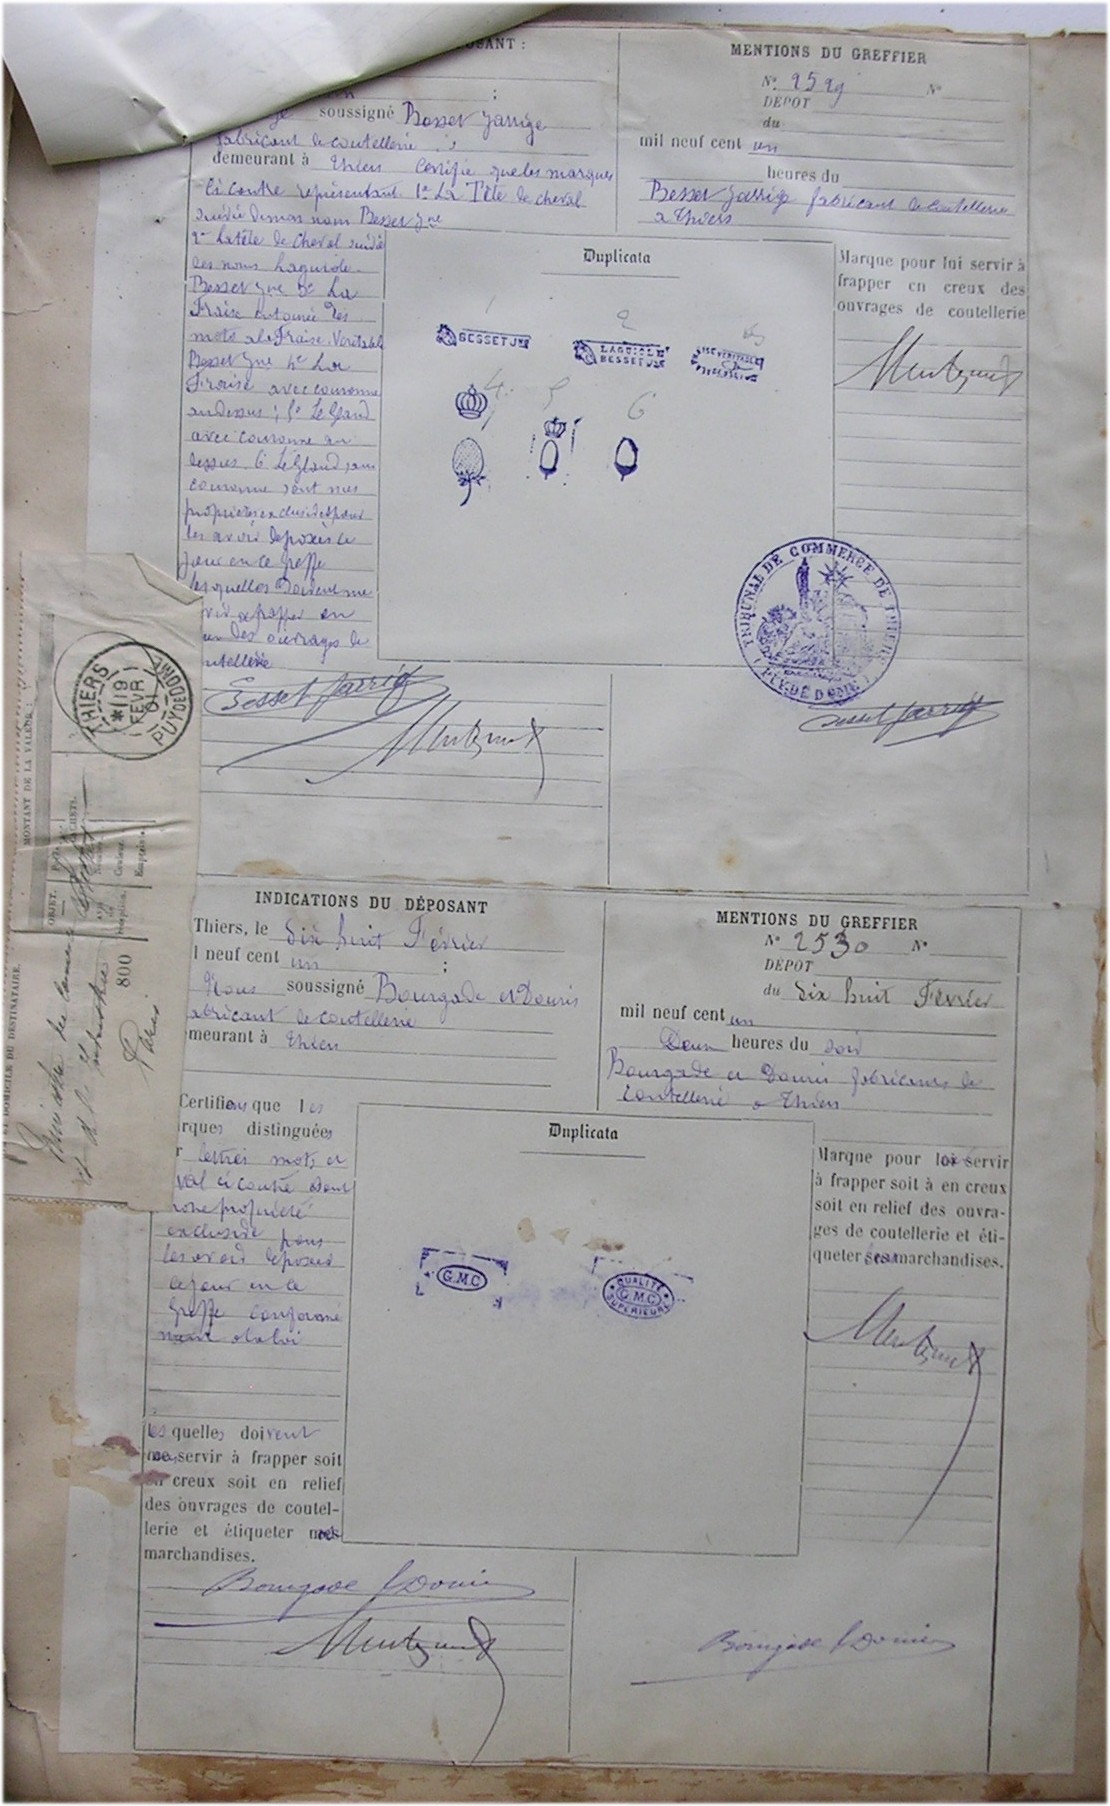 POSANT :
soussigné Besset Jarrige
fabricant de coutellerie
demeurant à Thiers Certifie que les marques
ci contre représentant 1º La Tête de cheval
suivie de mon nom Besset Jne
2º La tête de cheval suivie
des noms Laguiole
Besset Jne 3º La
Fraise entourée des
mots a la Fraise Véritable
Besset Jne 4º La
Fraise avec couronne
au dessus ; 5º Le Gland
avec couronne au
dessus 6º Le Gland sans
couronne sont mes
propriétés exclusives pour
les avoir déposées ce
jour en ce Greffe
lesquelles doivent me
servir à frapper en
creux des ouvrages de
coutellerie
Besset Jarrige
MENTIONS DU GREFFIER
Nº 2529 Nº
DÉPOT
du
mil neuf cent un
heures du
Besset Jarrige fabricant de coutellerie
a Thiers
Duplicata
1 2 3
BESSET JNE
LAGUIOLE
BESSET JNE
4 5 6
Marque pour lui servir à
frapper en creux des
ouvrages de coutellerie
TRIBUNAL DE COMMERCE DE THIERS
(PUY-DE-DOME)
Besset Jarrige
THIERS
19
FEVR
01
PUY DE DOME
MONTANT DE LA VALEUR :
OBJET.
CACHETS.
Couleur.
Empreinte.
ET DOMICILE DU DESTINATAIRE.
800
Paris
INDICATIONS DU DÉPOSANT
Thiers, le dix huit Février
l neuf cent un ;
Nous soussigné Bourgade et Douris
fabricant de coutellerie
meurant à Thiers
Certifions que les
rques distinguées
r lettres mots et
ci contre sont
notre propriété
exclusive pour
les avoir déposées
ce jour en ce
Greffe conformé
ment a la loi
lesquelles doivent
nous servir à frapper soit
en creux soit en relief
des ouvrages de coutel-
lerie et étiqueter nos
marchandises.
Bourgade & Douris
MENTIONS DU GREFFIER
Nº 2530 Nº
DÉPOT
du dix huit Février
mil neuf cent un
Deux heures du soir
Bourgade et Douris fabricants de
Coutellerie a Thiers
Duplicata
G.M.C
QUALITÉ
G.M.C
SUPÉRIEURE
Marque pour servir
à frapper soit à en creux
soit en relief des ouvra-
ges de coutellerie et éti-
queter marchandises.
Bourgade & Douris